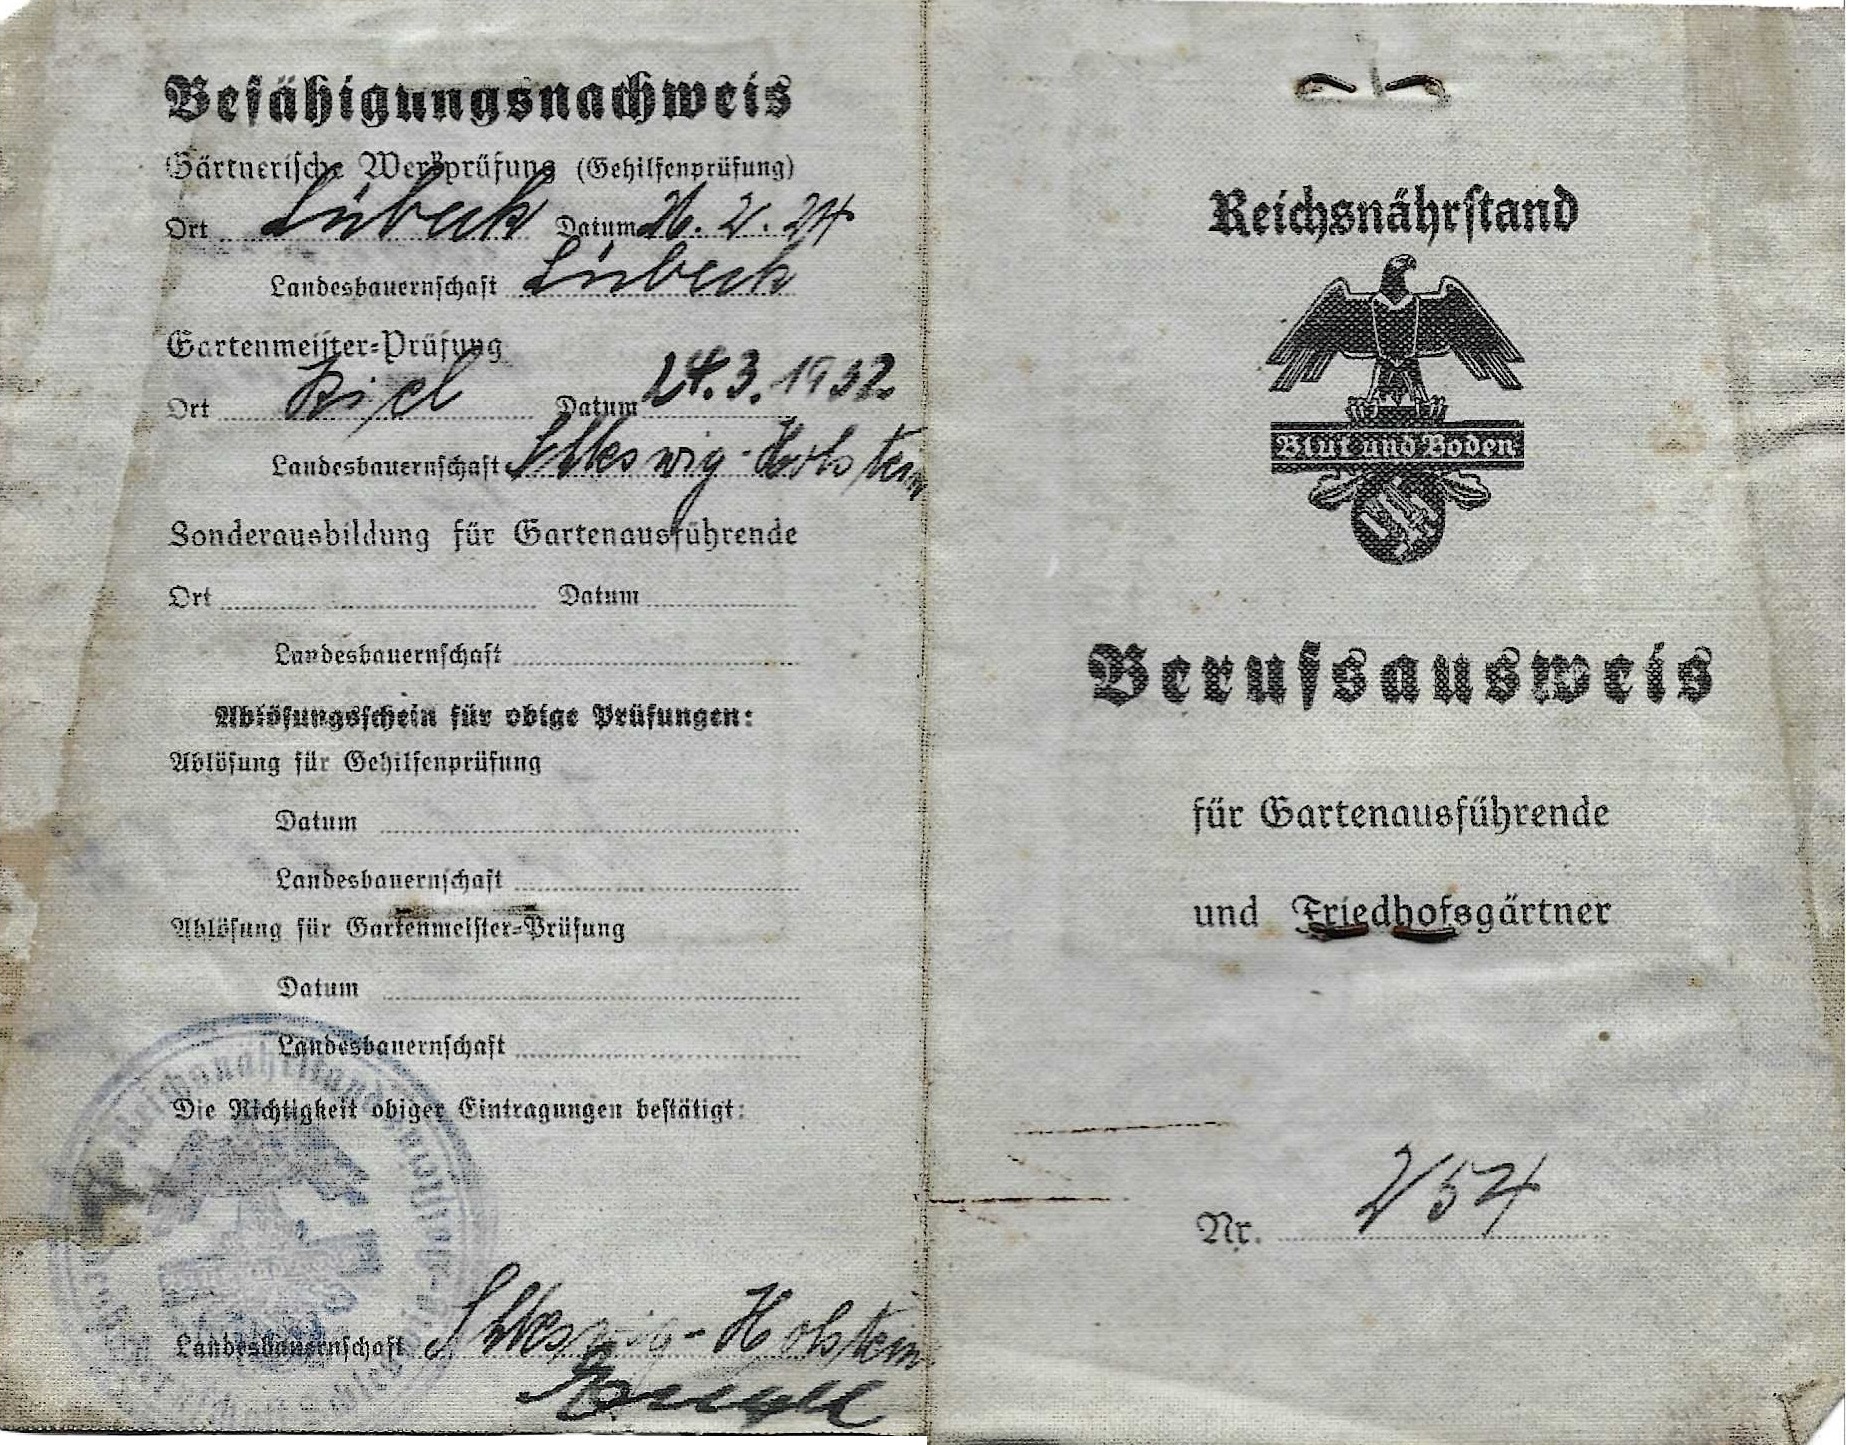 Befähigungsnachweis
Gärtnerische Werkprüfung (Gehilfenprüfung)
Ort Lübeck Datum 26. 2. 24
Landesbauernschaft Lübeck
Gartenmeister-Prüfung
Ort Kiel Datum 24. 3. 1932.
Landesbauernschaft Schleswig-Holstein
Sonderausbildung für Gartenausführende
Ort Datum
Landesbauernschaft
Ablösungsschein für obige Prüfungen:
Ablösung für Gehilfenprüfung
Datum
Landesbauernschaft
Ablösung für Gartenmeister-Prüfung
Datum
Landesbauernschaft
Die Richtigkeit obiger Eintragungen bestätigt:
Landesbauernschaft Schleswig-Holstein
Reichsnährstand
Reichsnährstand
Blut und Boden
Berufsausweis
für Gartenausführende
und Friedhofsgärtner
Nr. 254